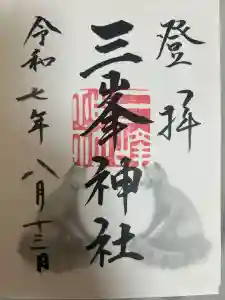 登拝
三峯神社
令和七年 八月十三日